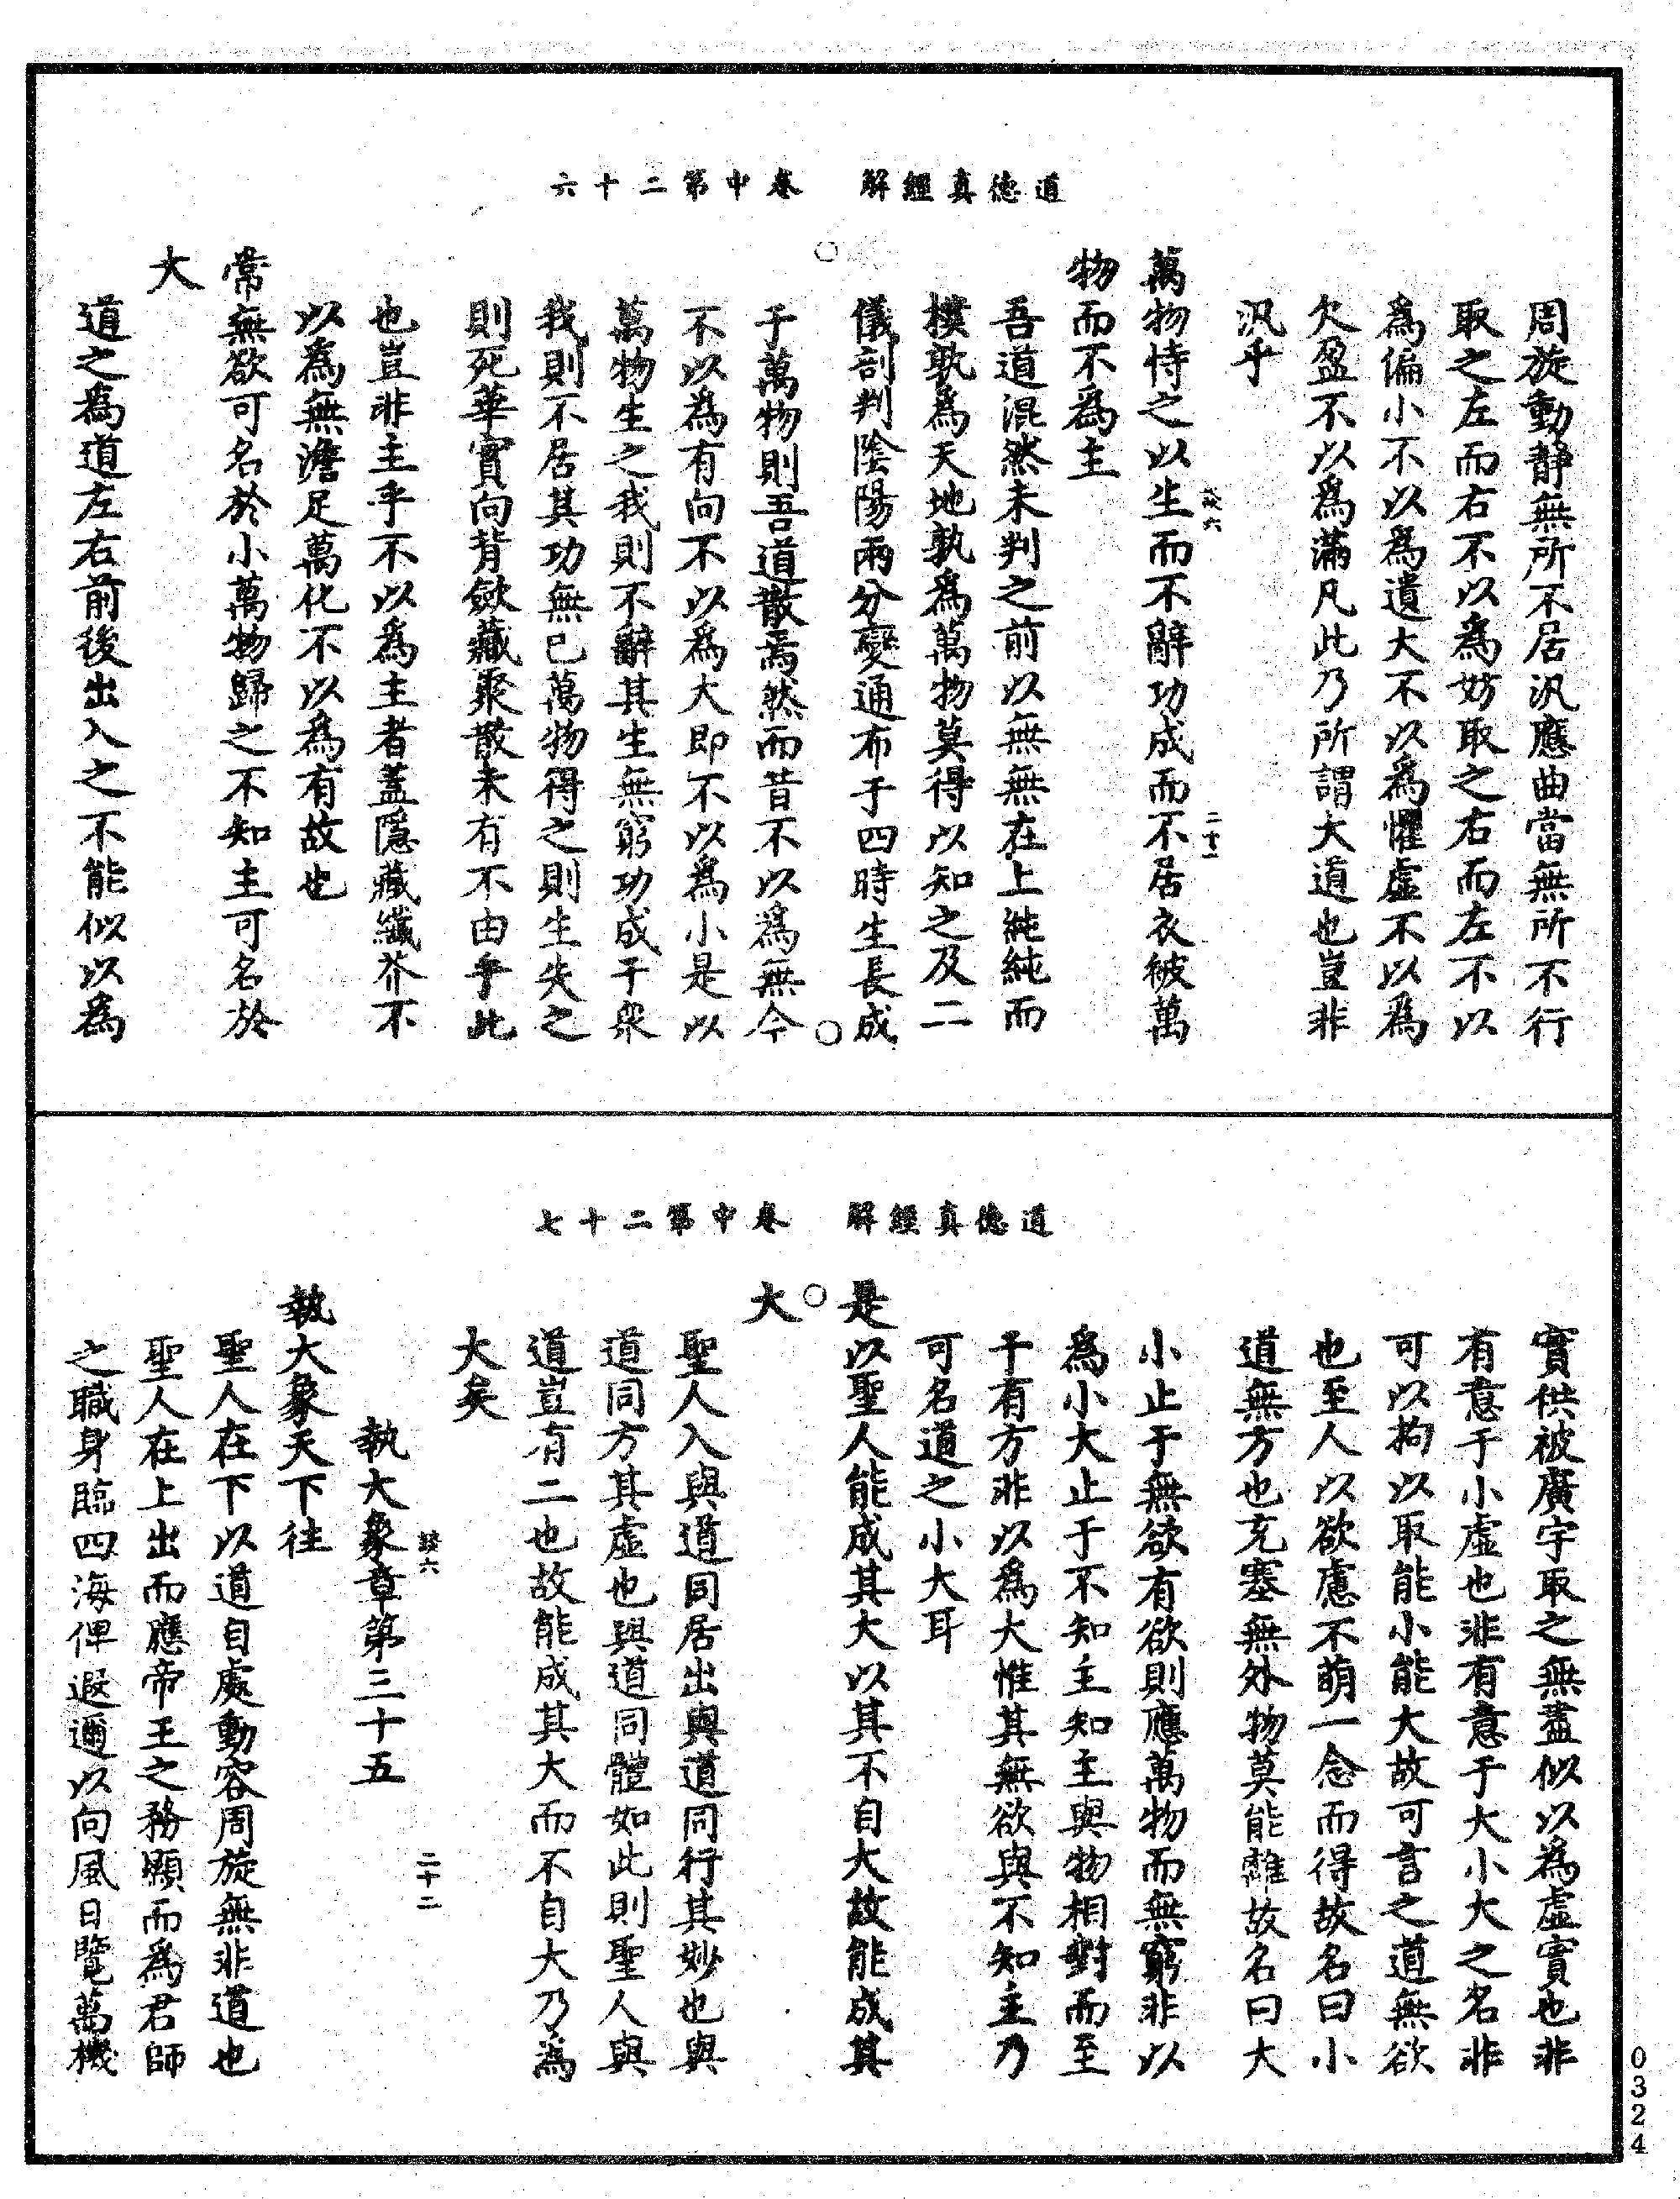 道德真經解　卷中第二十六
周旋動靜無所不居汎應曲當無所不行
取之左而右不以為妨取之右而左不以
為偏小不以為遺大不以為懼虛不以為
欠盈不以為滿凡此乃所謂大道也豈非
汎乎
萬物恃之以生而不辭功成而不居衣被萬
物而不為主
吾道混然未判之前以無無在上純純而
樸孰為天地孰為萬物莫得以知之及二
儀剖判陰陽兩分變通布于四時生長成
于萬物則吾道散焉然而昔不以為無今
不以為有向不以為大即不以為小是以
萬物生之我則不辭其生無窮功成干衆
我則不居其功無已萬物得之則生失之
則死華實向背斂藏聚散未有不由乎此
也豈非主乎不以為主者蓋隱藏纖芥不
以為無澹足萬化不以為有故也
常無欲可名於小萬物歸之不知主可名於
大
道之為道左右前後出入之不能似以為
二十一
道德真經解　卷中第二十七
實供被廣宇取之無盡似以為虛實也非
有意于小虛也非有意于大小大之名非
可以拘以取能小能大故可言之道無欲
也至人以欲慮不萌一念而得故名曰小
道無方也充塞無外物莫能離故名曰大
小止于無欲有欲則應萬物而無窮非以
為小大止于不知主知主與物相對而至
干有方非以為大惟其無欲與不知主乃
可名道之小大耳
是以聖人能成其大以其不自大故能成其
大
聖人入與道同居出與道同行其妙也與
道同方其虛也與道同體如此則聖人與
道豈有二也故能成其大而不自大乃為
大矣
談六　二十二
執大象章第三十五
執大象天下往
聖人在下以道自處動容周旋無非道也
聖人在上出而應帝王之務顯而為君師
之職身臨四海俾遐邇以向風日覽萬機
0324